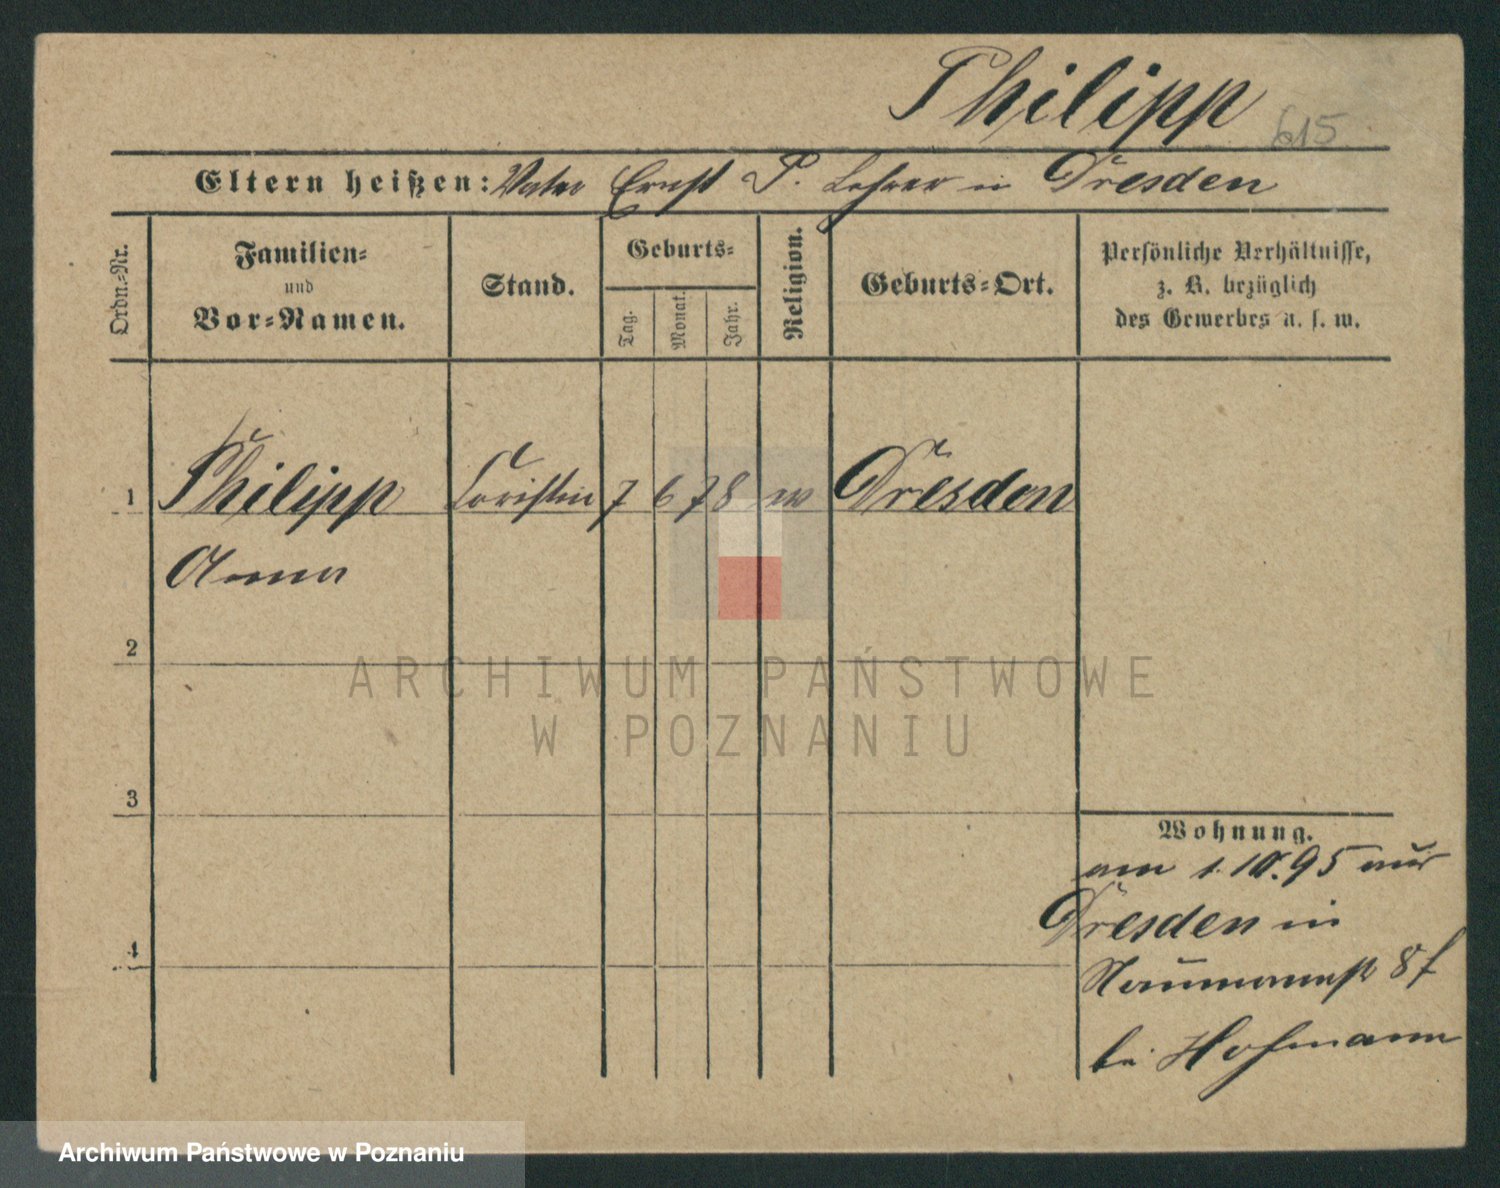 Philipp
615
Eltern heißen: Vater Ernst P. Lehrer in Dresden
Ordn.-Nr.
Familien- und Vor-Namen.
Stand.
Geburts-
Tag.
Monat.
Jahr.
Religion.
Geburts-Ort.
Persönliche Verhältnisse, z. B. bezüglich des Gewerbes u. s. w.
1 Philipp Choristin 7 6 78 Dresden
Anna
2
ARCHIWUM PAŃSTWOWE
W POZNANIU
3
Wohnung.
am 1.10.95 aus
Dresden in
Naumannst 8 f
4
bei Hofmann
Archiwum Państwowe w Poznaniu